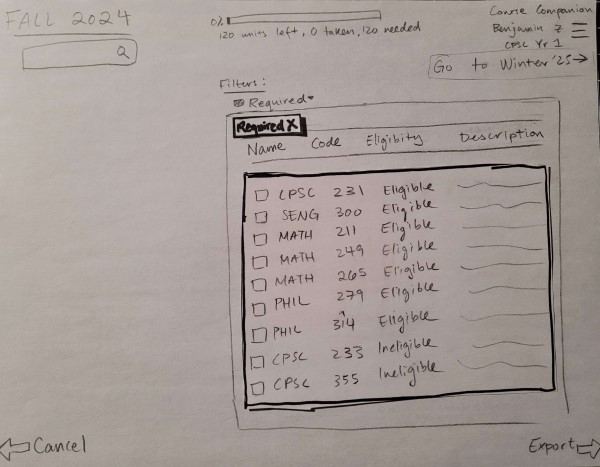 FALL 2024
0%
120 units left, 0 taken, 120 needed
Course Companion
Benjamin Z
CPSC Yr 1
Go to Winter '25→
Filters:
Required
Required X
Name Code Eligibity Description
CPSC 231 Eligible
SENG 300 Eligible
MATH 211 Eligible
MATH 249 Eligible
MATH 265 Eligible
PHIL 279 Eligible
PHIL 314 Eligible
CPSC 233 Ineligible
CPSC 355 Ineligible
Cancel
Export